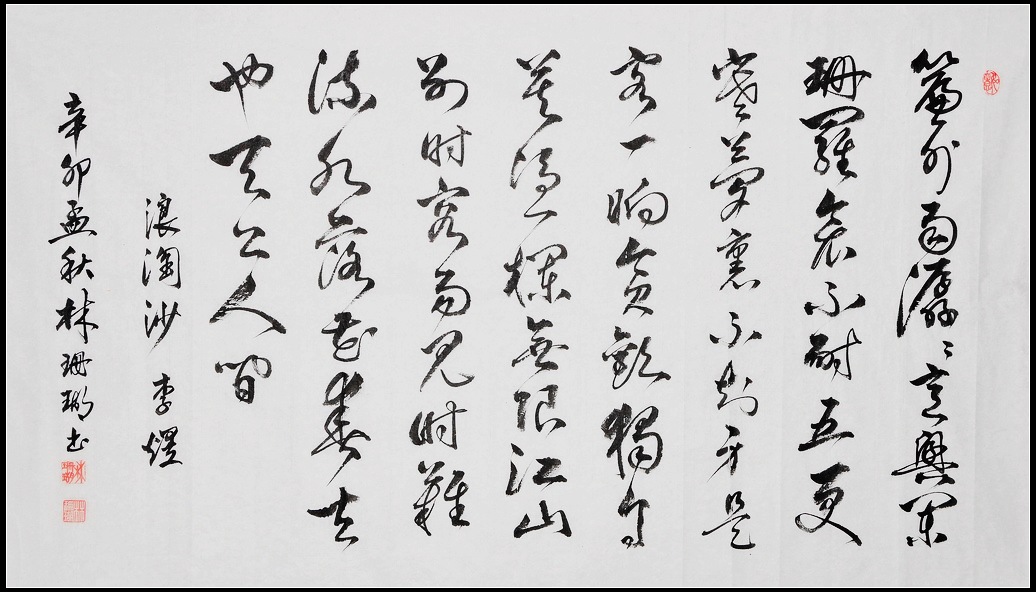 簾外雨潺〻意興闌
珊羅衾不耐五更
寒夢裏不知身是
客一晌貪歡獨自
莫憑欄無限江山
別時容易見時難
流水落花春去
也天上人間
浪淘沙 李煜
辛卯孟秋林珊瑚书